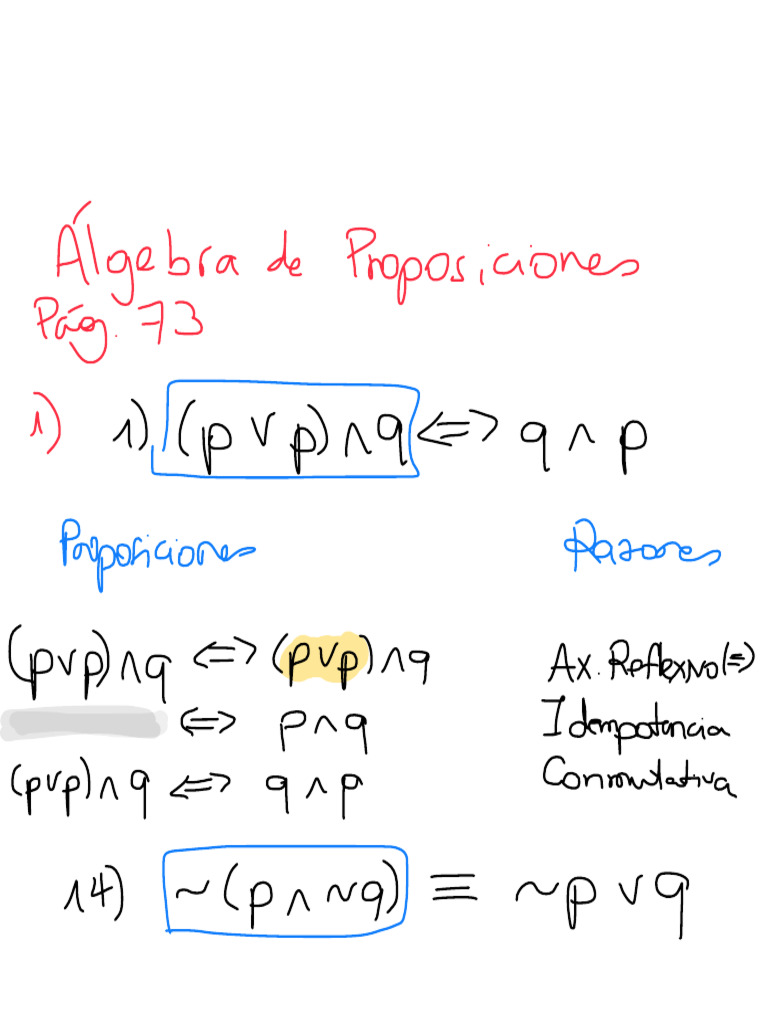 Álgebra de Proposiciones
Pág. 73
1) 1) (p ∨ p) ∧ q <=> q ∧ p
Proposiciones Razones
(p∨p)∧q <=> (p∨p)∧q Ax. Reflexivo (=)
<=> p∧q Idempotencia
(p∨p)∧q <=> q∧p Conmutativa
14) ~(p ∧ ~q) ≡ ~p ∨ q